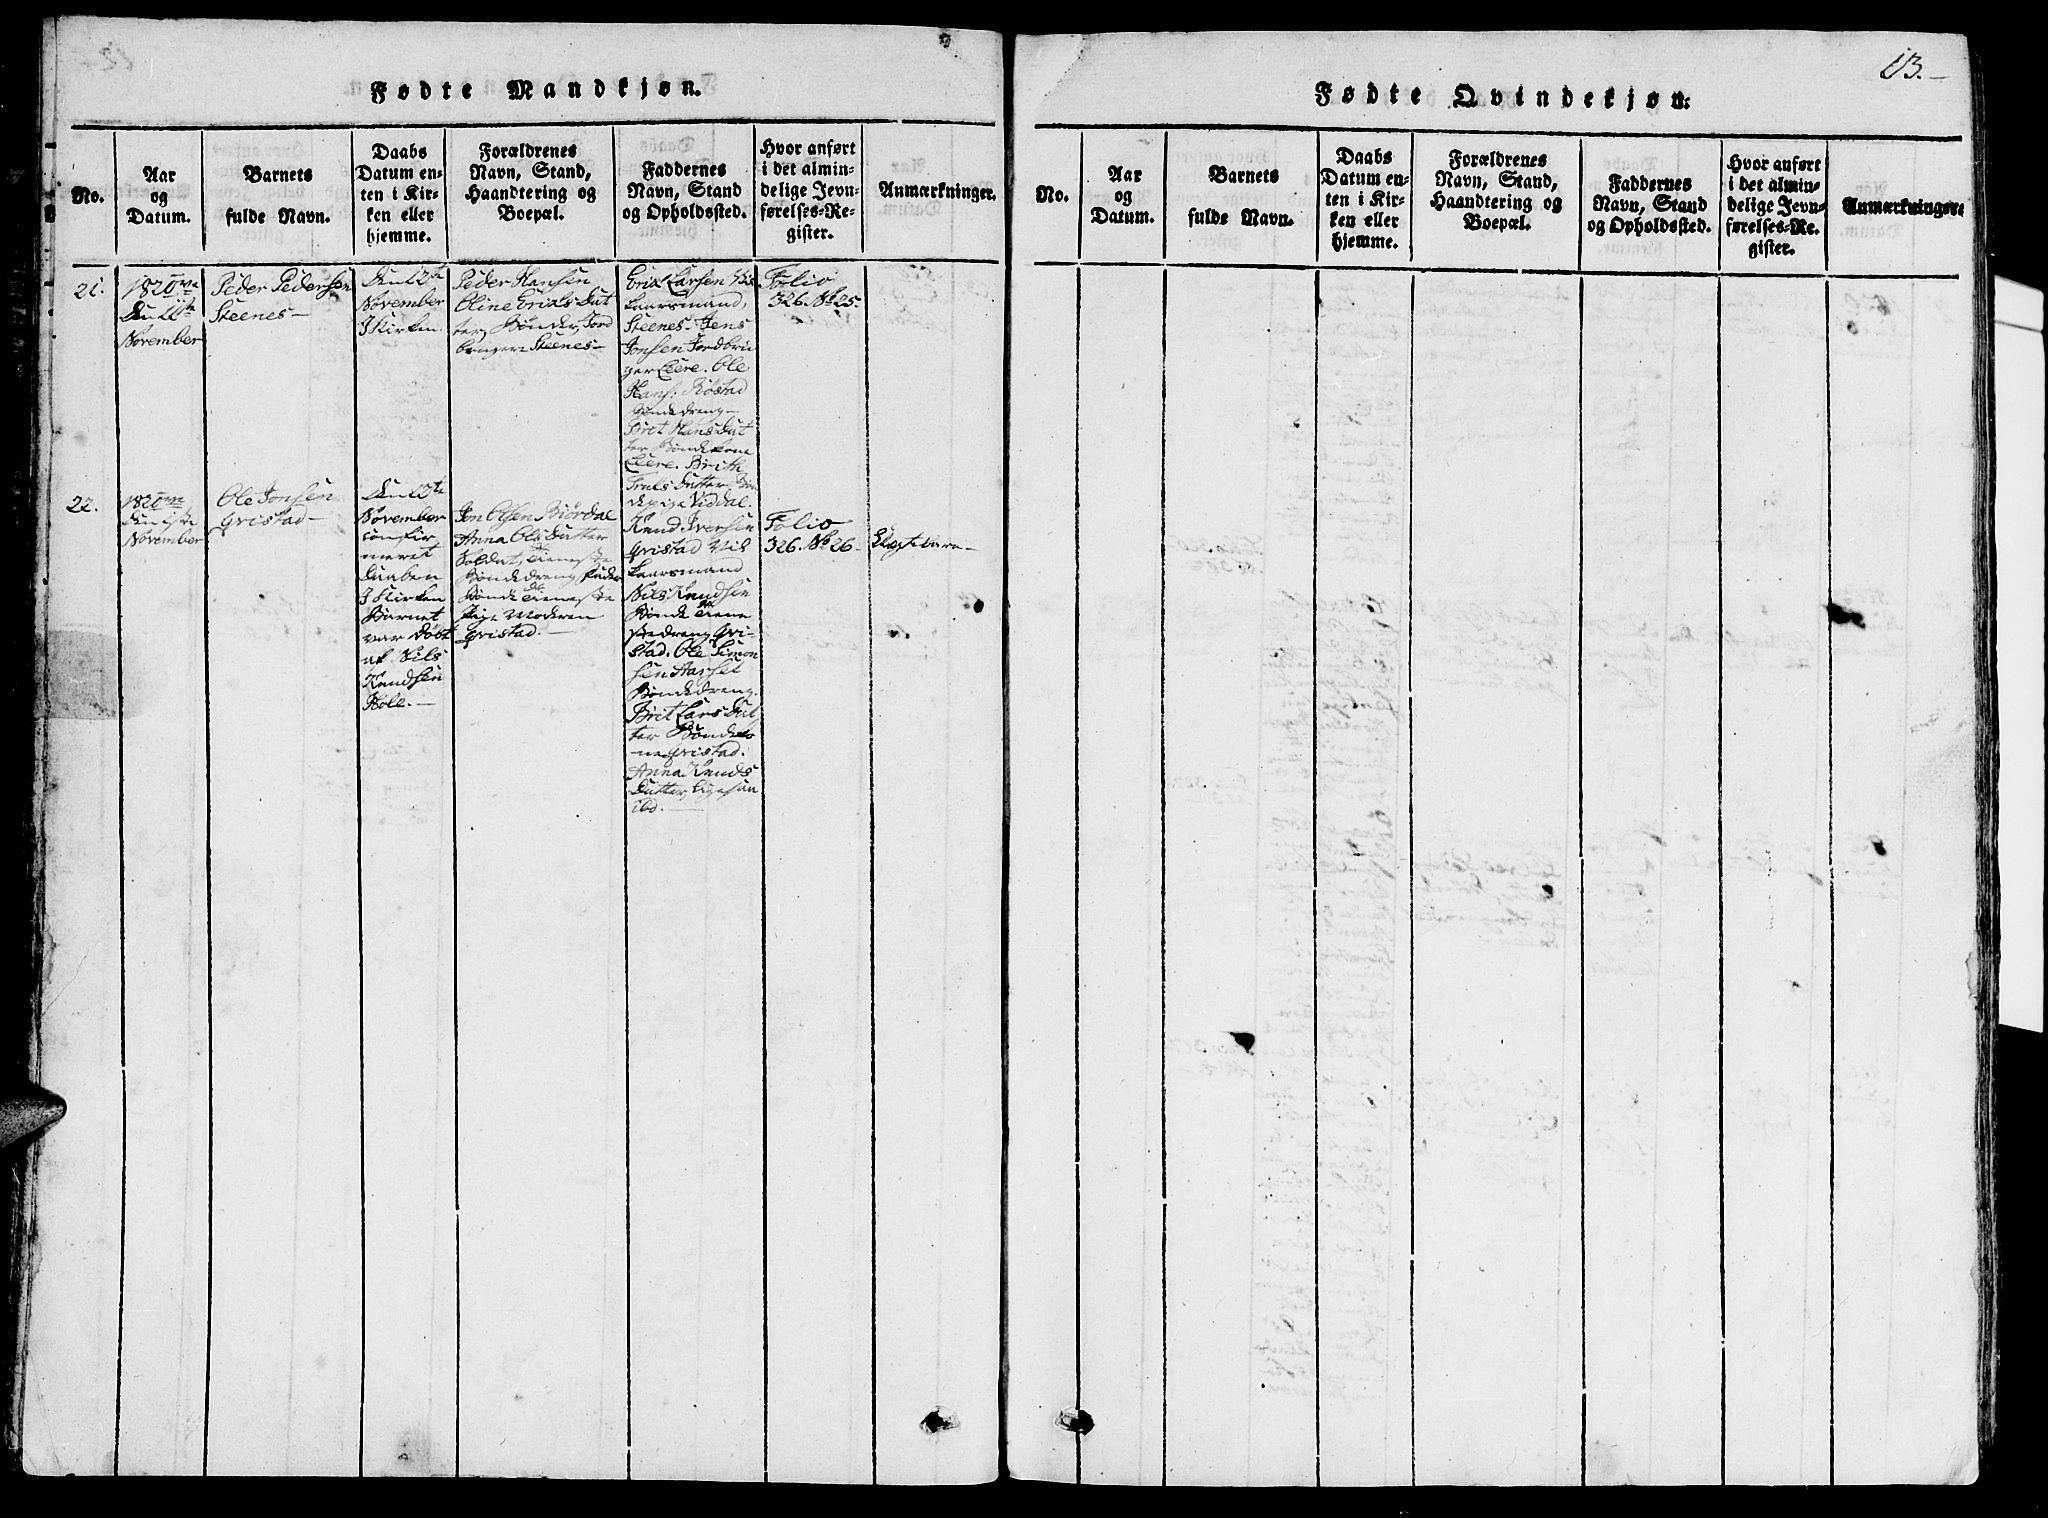 Fødte Mandkjøn.
No.
Aar
og
Datum.
Barnets
fulde Navn.
Daabs
Datum en-
ten i Kir-
ken eller
hjemme.
Forældrenes
Navn, Stand,
Haandtering og
Boepæl.
Faddernes
Navn, Stand
og Opholdssted.
Hvor anført
i det almin-
delige Jevn-
førelses-Re-
gister.
Anmærkninger.
21.
1820
Den 11te
November
Peder Pedersen
Steenes
Den 12te
November
I Kirken
Peder Hansen
Oline Erichs Dat
ter, Bønder, Jord
bruger Steenes
Erik Larsen
kaarsmand,
Steenes. Jens
Jonsen Jordbru
ger Leere. Ole
Hans: Røstad
Bondedreng
Brit Hans Dat
ter Bondekone
Leere. Brith
Truls Datter, Bon
depige Viddal.
Folio
326. No 25.
22.
1820
Den
November
Ole Jonsen
Gristad
Den 12te
November
confir
meret
Daaben
I Kirken
Barnet
var døbt
af Nils
Knudsen
Hole.
Jon Olsen Biørdal
Anna Ols Datter
Soldat, Tieneste
Bondedreng Fader
Bonde Tieneste
Pige Moderen
Gristad.
Knud Iversen
Gristad Vil
kaarsmand
Nils Knudsen
Bonde Tiene
stedreng Gri-
stad. Ole Simon
sen Aarset
Bondedreng.
Brit Lars Dat
ter Bondeko
ne Gristad.
Anna Knuds
Datter, Ligesaa
ibd.
Folio
326. No 26
Uægtebarn
13.
Fødte Qvindekjøn:
No.
Aar
og
Datum.
Barnets
fulde Navn.
Daabs
Datum en-
ten i Kir-
ken eller
hjemme.
Forældrenes
Navn, Stand,
Haandtering og
Boepæl.
Faddernes
Navn, Stand
og Opholdssted.
Hvor anført
i det almin-
delige Jevn-
førelses-Re-
gister.
Anmærkninger.